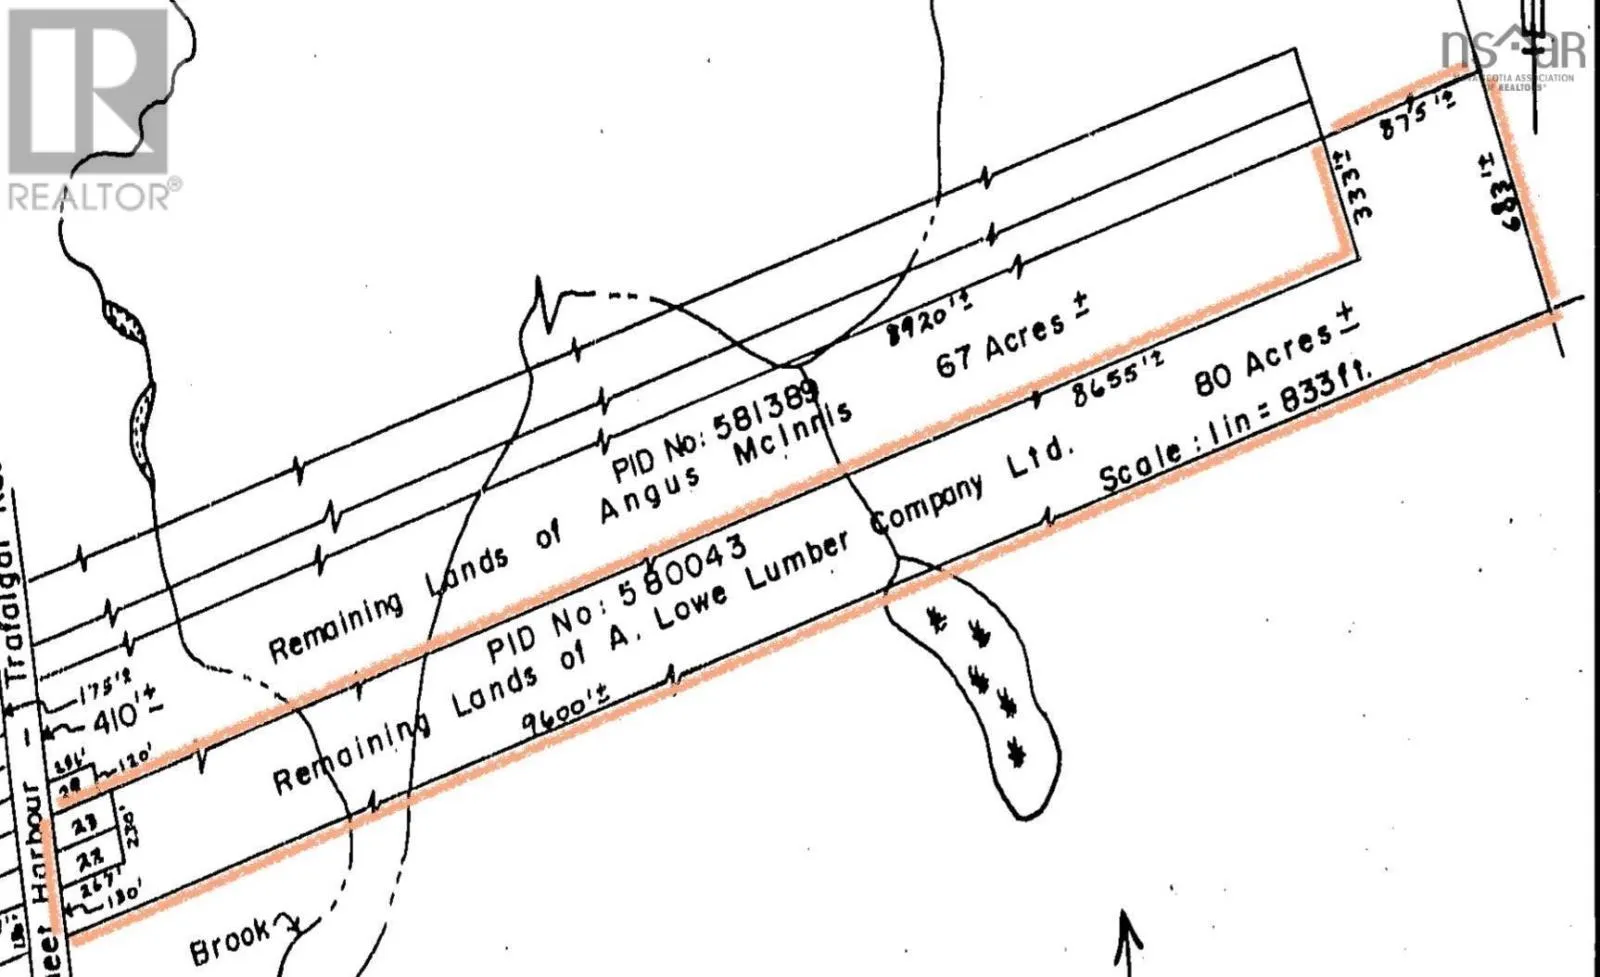 REALTOR®
nsar
NOVA SCOTIA ASSOCIATION
OF REALTORS®
875'±
333'±
683'±
8920'±
67 Acres ±
8655'±
80 Acres ±
Scale : 1in = 833ft.
PID No: 581389
Remaining Lands of Angus McInnis
PID No: 580043
Remaining Lands of A. Lowe Lumber Company Ltd.
9600'±
175'±
410'±
120'
29
23
230'
22
267'
130'
Trafalgar
Harbour
Brook